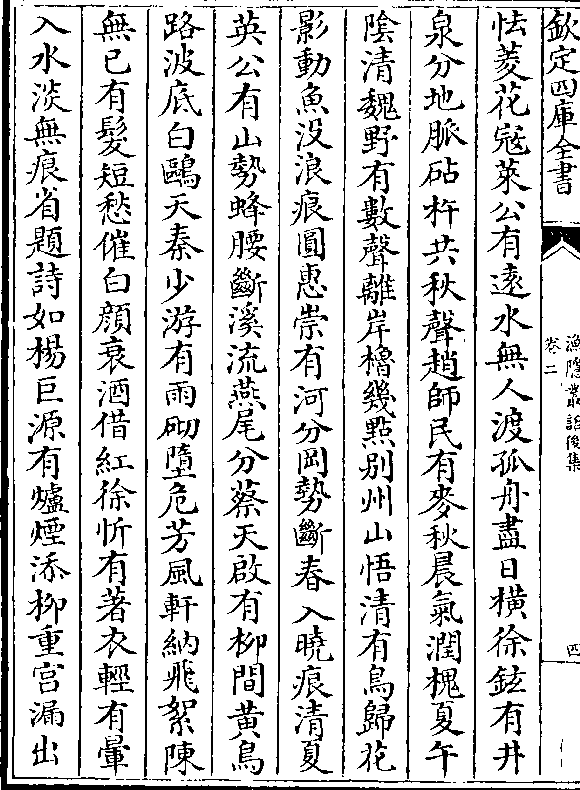 欽定四庫全書
漁隱叢話後集
卷二
四
怯菱花冦萊公有遠水無人渡孤舟盡日橫徐鉉有井
泉分地脈砧杵共秋聲趙師民有麥秋晨氣潤槐夏午
陰清魏野有數聲離岸櫓幾點别州山悟清有鳥歸花
影動魚没浪痕圓惠崇有河分岡勢斷春入曉痕清夏
英公有山勢蜂腰斷溪流燕尾分蔡天啟有柳間黄鳥
路波底白鷗天秦少游有雨砌墮危芳風軒納飛絮陳
無已有髮短愁催白顔衰酒借紅徐忻有著衣輕有暈
入水淡無痕省題詩如楊巨源有爐煙添柳重宫漏出